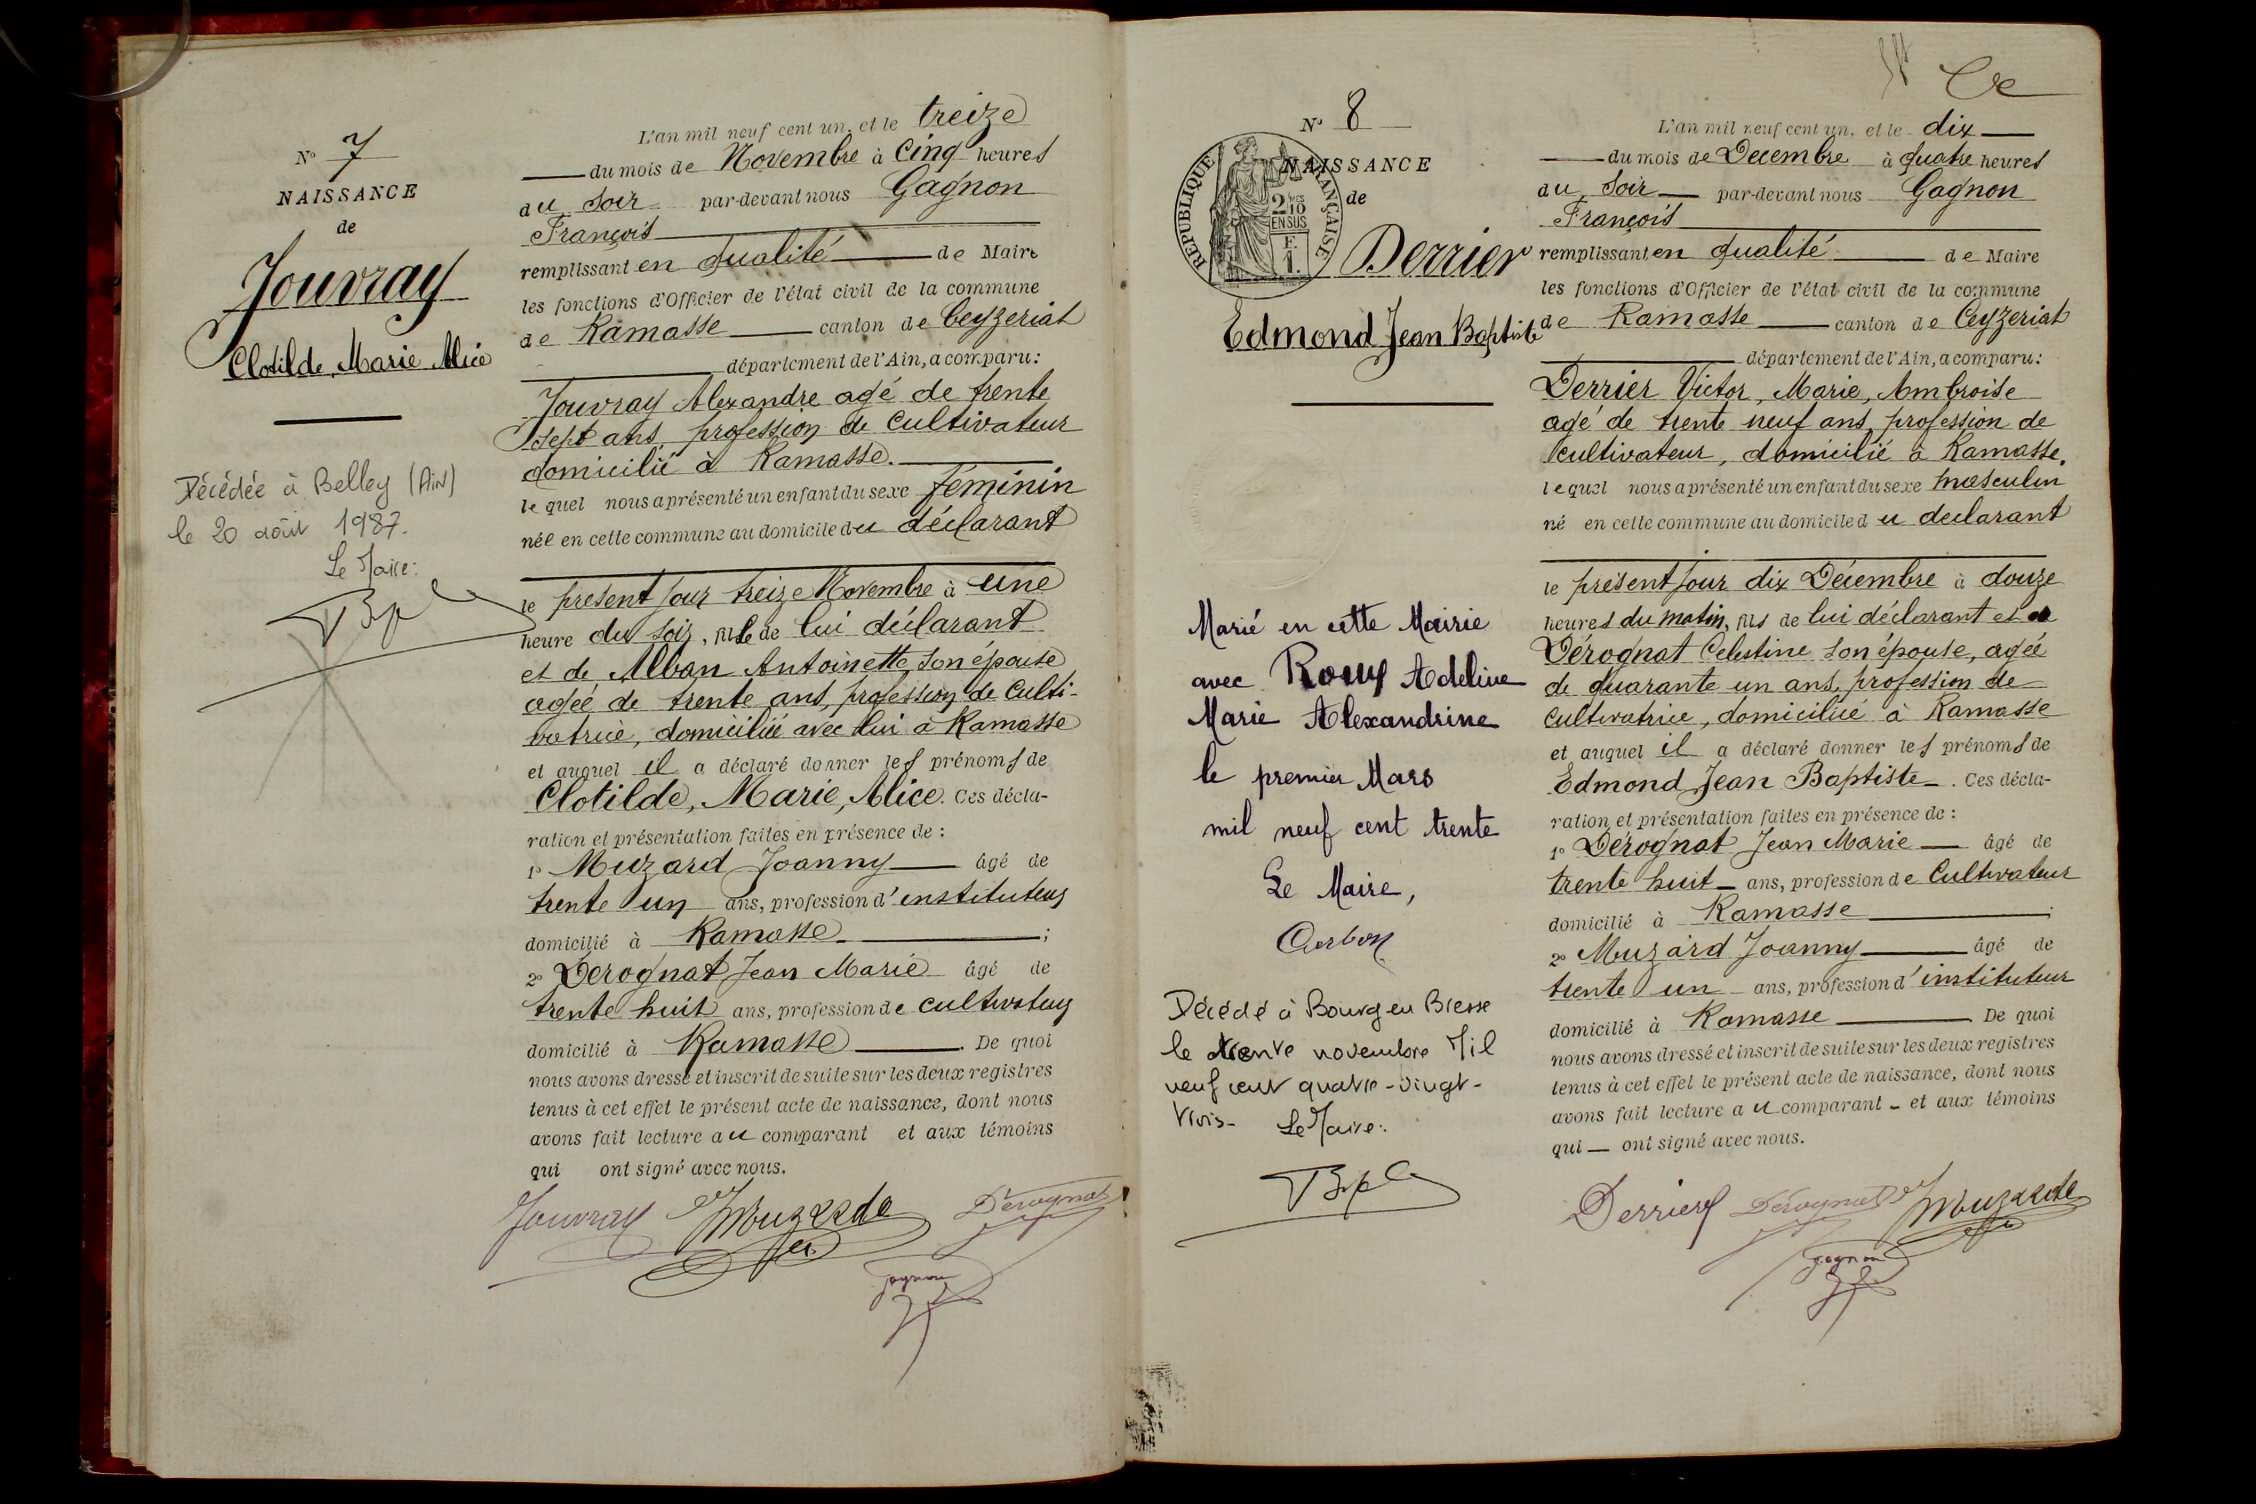 N° 7
NAISSANCE
de
Jouvray
Clotilde, Marie Alice
Décédée à Belley (Ain)
le 20 août 1987.
Le Maire:
L'an mil neuf cent un, et le treize
du mois de Novembre à cinq heures
du soir par-devant nous Gagnon
François
remplissant en qualité de Maire
les fonctions d'Officier de l'état civil de la commune
de Ramasse canton de Ceyzeriat
département de l'Ain, a comparu:
Jouvray Alexandre agé de trente
sept ans, profession de cultivateur
domicilié à Ramasse.
le quel nous a présenté un enfant du sexe féminin
née en cette commune au domicile du déclarant
le présent jour treize Novembre à une
heure du soir, fille de lui déclarant
et de Alban Antoinette son épouse
agée de trente ans, profession de culti-
vatrice, domiciliée avec lui à Ramasse
et auquel il a déclaré donner les prénoms de
Clotilde, Marie, Alice. Ces décla-
ration et présentation faites en présence de :
1° Muzard Joanny âgé de
trente un ans, profession d'instituteur
domicilié à Ramasse ;
2° Dérognat Jean Marie âgé de
trente huit ans, profession de cultivateur
domicilié à Ramasse . De quoi
nous avons dressé et inscrit de suite sur les deux registres
tenus à cet effet le présent acte de naissance, dont nous
avons fait lecture au comparant et aux témoins
qui ont signé avec nous.
Jouvray Muzard Dérognat
Gagnon
N° 8
NAISSANCE
de
RÉPUBLIQUE FRANÇAISE
2/10
EN SUS
F.
1.
Derrier
Edmond Jean Baptiste
Marié en cette Mairie
avec Roux Adeline
Marie Alexandrine
le premier Mars
mil neuf cent trente
Le Maire,
Décédé à Bourg en Bresse
le trente novembre Mil
neuf cent quatre-vingt-
trois-
Le Maire:
L'an mil neuf cent un, et le dix
du mois de Décembre à quatre heures
du soir par-devant nous Gagnon
François
remplissant en qualité de Maire
les fonctions d'Officier de l'état civil de la commune
de Ramasse canton de Ceyzeriat
département de l'Ain, a comparu:
Derrier Victor, Marie, Ambroise
agé de trente neuf ans, profession de
cultivateur, domicilié à Ramasse.
lequel nous a présenté un enfant du sexe masculin
né en cette commune au domicile du declarant
le présent jour dix Décembre à douze
heures du matin, fils de lui déclarant et de
Dérognat Celestine son épouse, agée
de quarante un ans, profession de
cultivatrice, domiciliée à Ramasse
et auquel il a déclaré donner les prénoms de
Edmond Jean Baptiste . Ces décla-
ration et présentation faites en présence de :
1° Dérognat Jean Marie âgé de
trente huit ans, profession de Cultivateur
domicilié à Ramasse ;
2° Muzard Joanny âgé de
trente un ans, profession d'instituteur
domicilié à Ramasse De quoi
nous avons dressé et inscrit de suite sur les deux registres
tenus à cet effet le présent acte de naissance, dont nous
avons fait lecture au comparant et aux témoins
qui ont signé avec nous.
Derrier Dérognat Muzard
Gagnon